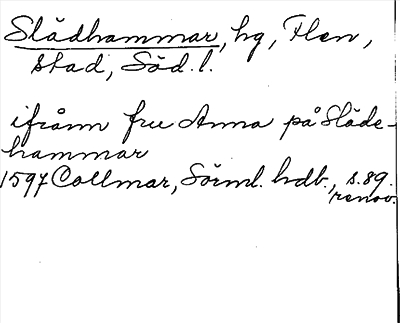 Slådhammar, hg, Flen,
stad, Söd. l.
ifrånn fru Anna på Slåde-
hammar
1597 Collmar, Sörml. hdb., s. 89.
renov.